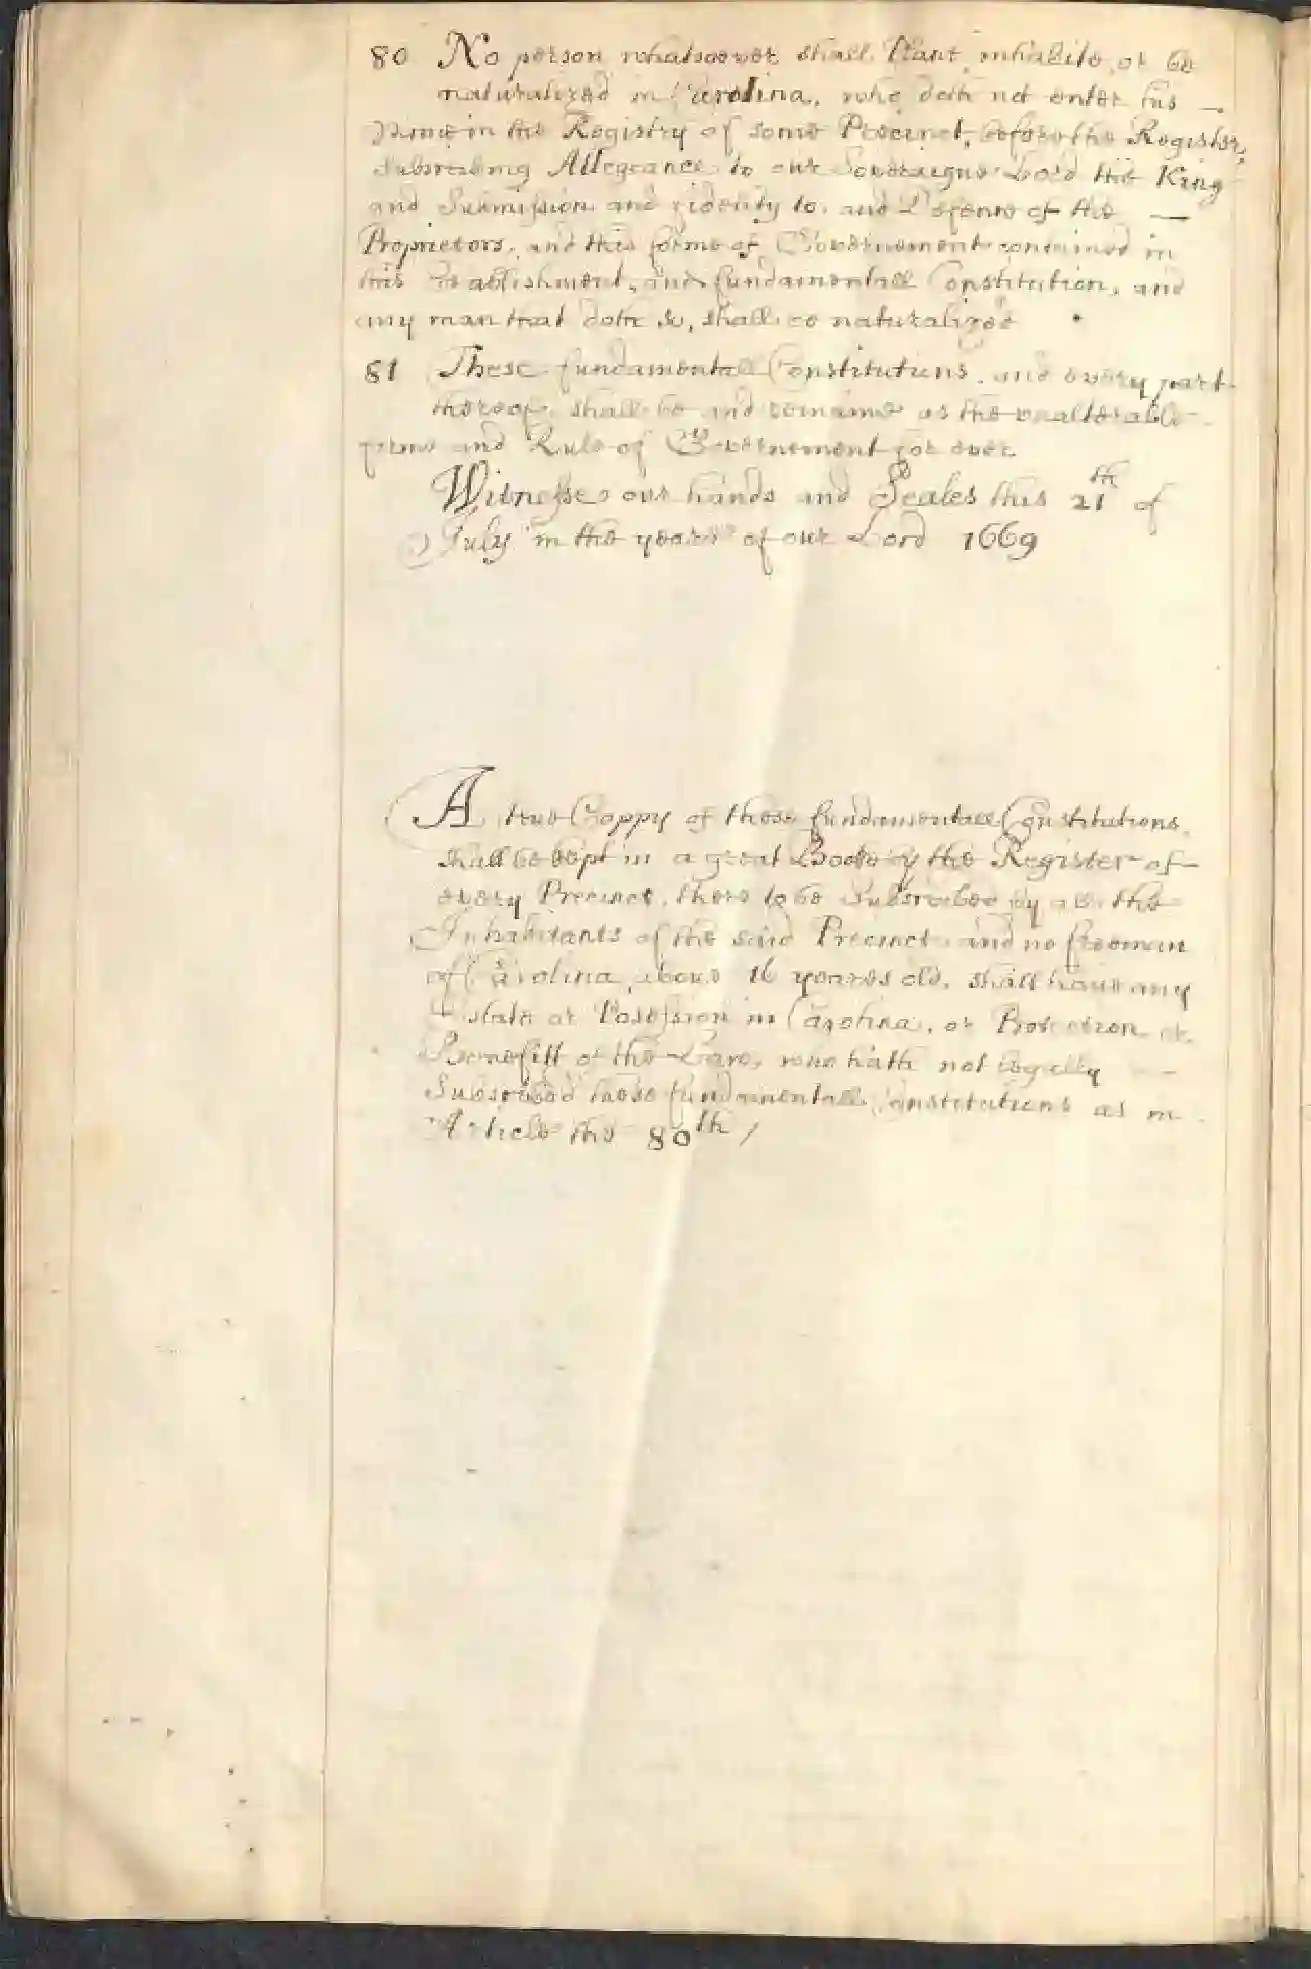 80 No person whatsoever shall Plant, inhabite, or be
naturalized in Carolina, who doth not enter his
Name in the Registry of some Precinct, before the Register,
Subscribing Allegeance to our Soveraigne Lord the King
and Submission and fidenty to, and Defence of the
Proprietors, and this forme of Governement contained in
this Establishment, and fundamentall Constitution, and
any man that doth so, shall be naturalized
81 These fundamentall Constitutions, and every part
thereof, shall be and remaine as the unalterable
forme and Rule of Governement for ever
Witnesse our hands and Seales this 21th of
July in the yeare of our Lord 1669
A true Coppy of these fundamentall Constitutions
shall be kept in a great Booke by the Register of
every Precinct, there to be Subscribed by all the
Inhabitants of the said Precinct, and no freeman
of Carolina above 16 yeares old, shall have any
Estate or Possession in Carolina, or Protection or
Benefitt of the Law, who hath not legally
Subscribed these fundamentall Constitutions as in
Article the 80th /